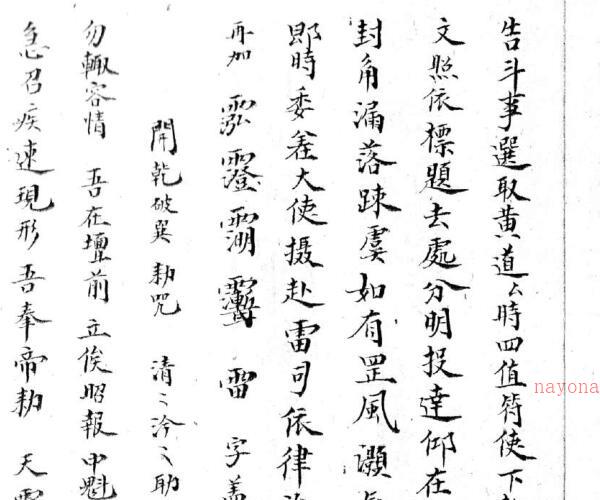 告斗事選取黄道么時四值符使下
文照依標題去處分明投達仰在
封角漏落踈虞如有罡風灝
即時委差大使摄赴雷司依律
再加 雷 字盖
開乾破巽 勑咒 清〻泠〻助
勿輙容情 吾在壇前 立俟昭報 中魁
急召疾速現形 吾奉帝勑 天
nayona